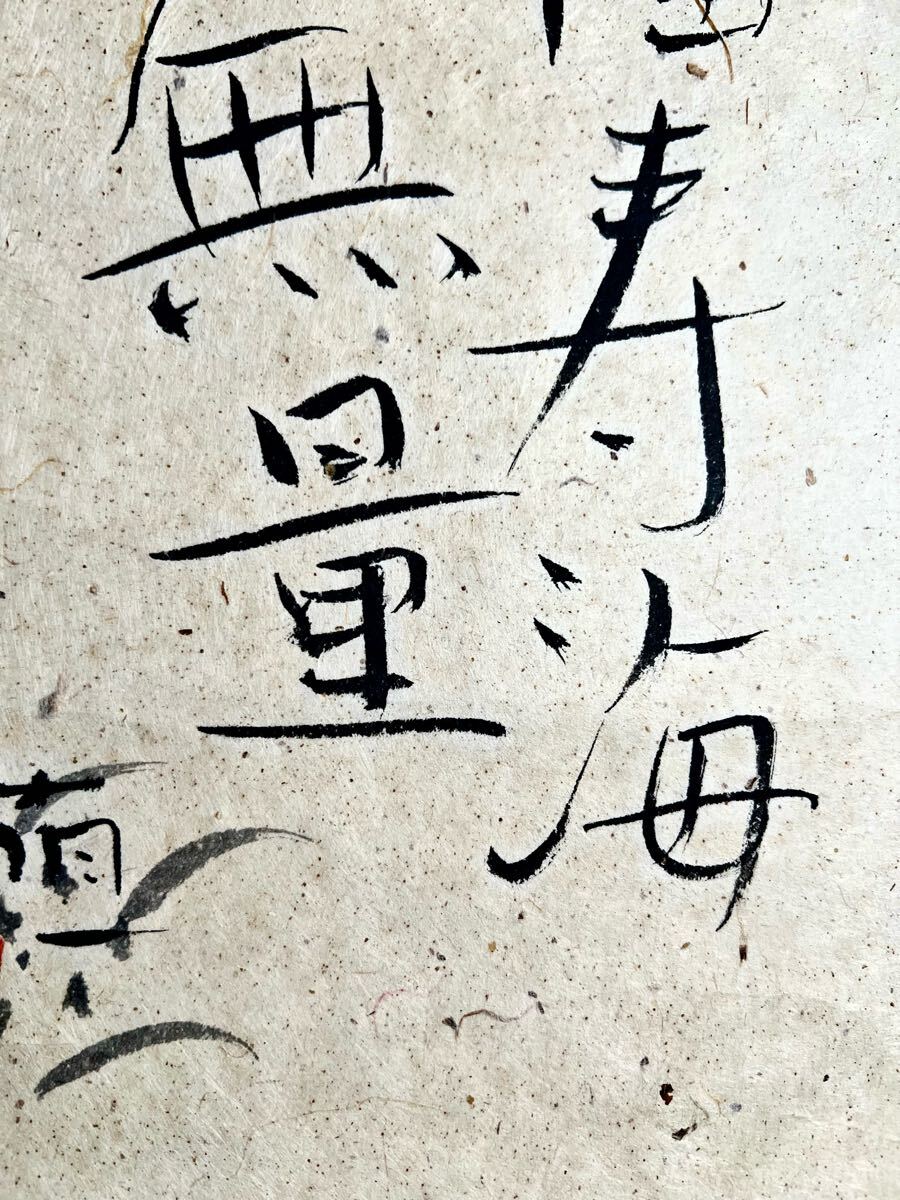 寿海
無量